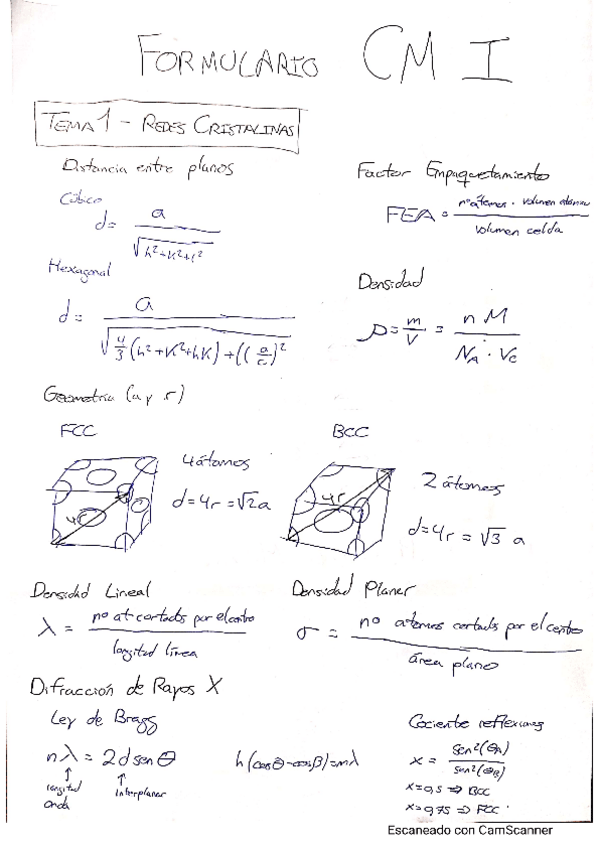 FORMULARIO CM I
TEMA 1 - REDES CRISTALINAS
Distancia entre planos
Cúbico
d = a / √(h²+k²+l²)
Hexagonal
d = a / √(4/3 (h²+k²+hk) + (l(a/c)²
Factor Empaquetamiento
FEA = nº átomos · volumen atómico / volumen celda
Densidad
ρ = m/V = n M / N_A · V_c
Geometría (a y r)
FCC
4r
4 átomos
d = 4r = √2 a
BCC
4r
2 átomos
d = 4r = √3 a
Densidad Lineal
λ = nº at cortados por el centro / longitud línea
Densidad Planar
σ = nº atomos cortados por el centro / área plano
Difracción de Rayos X
Ley de Bragg
nλ = 2d senθ
longitud onda
interplanar
h(cosθ-cosβ)=mλ
Cociente reflexiones
x = sen²(θA) / sen²(θB)
x=0,5 ⇒ BCC
x=0,75 ⇒ FCC
Escaneado con CamScanner